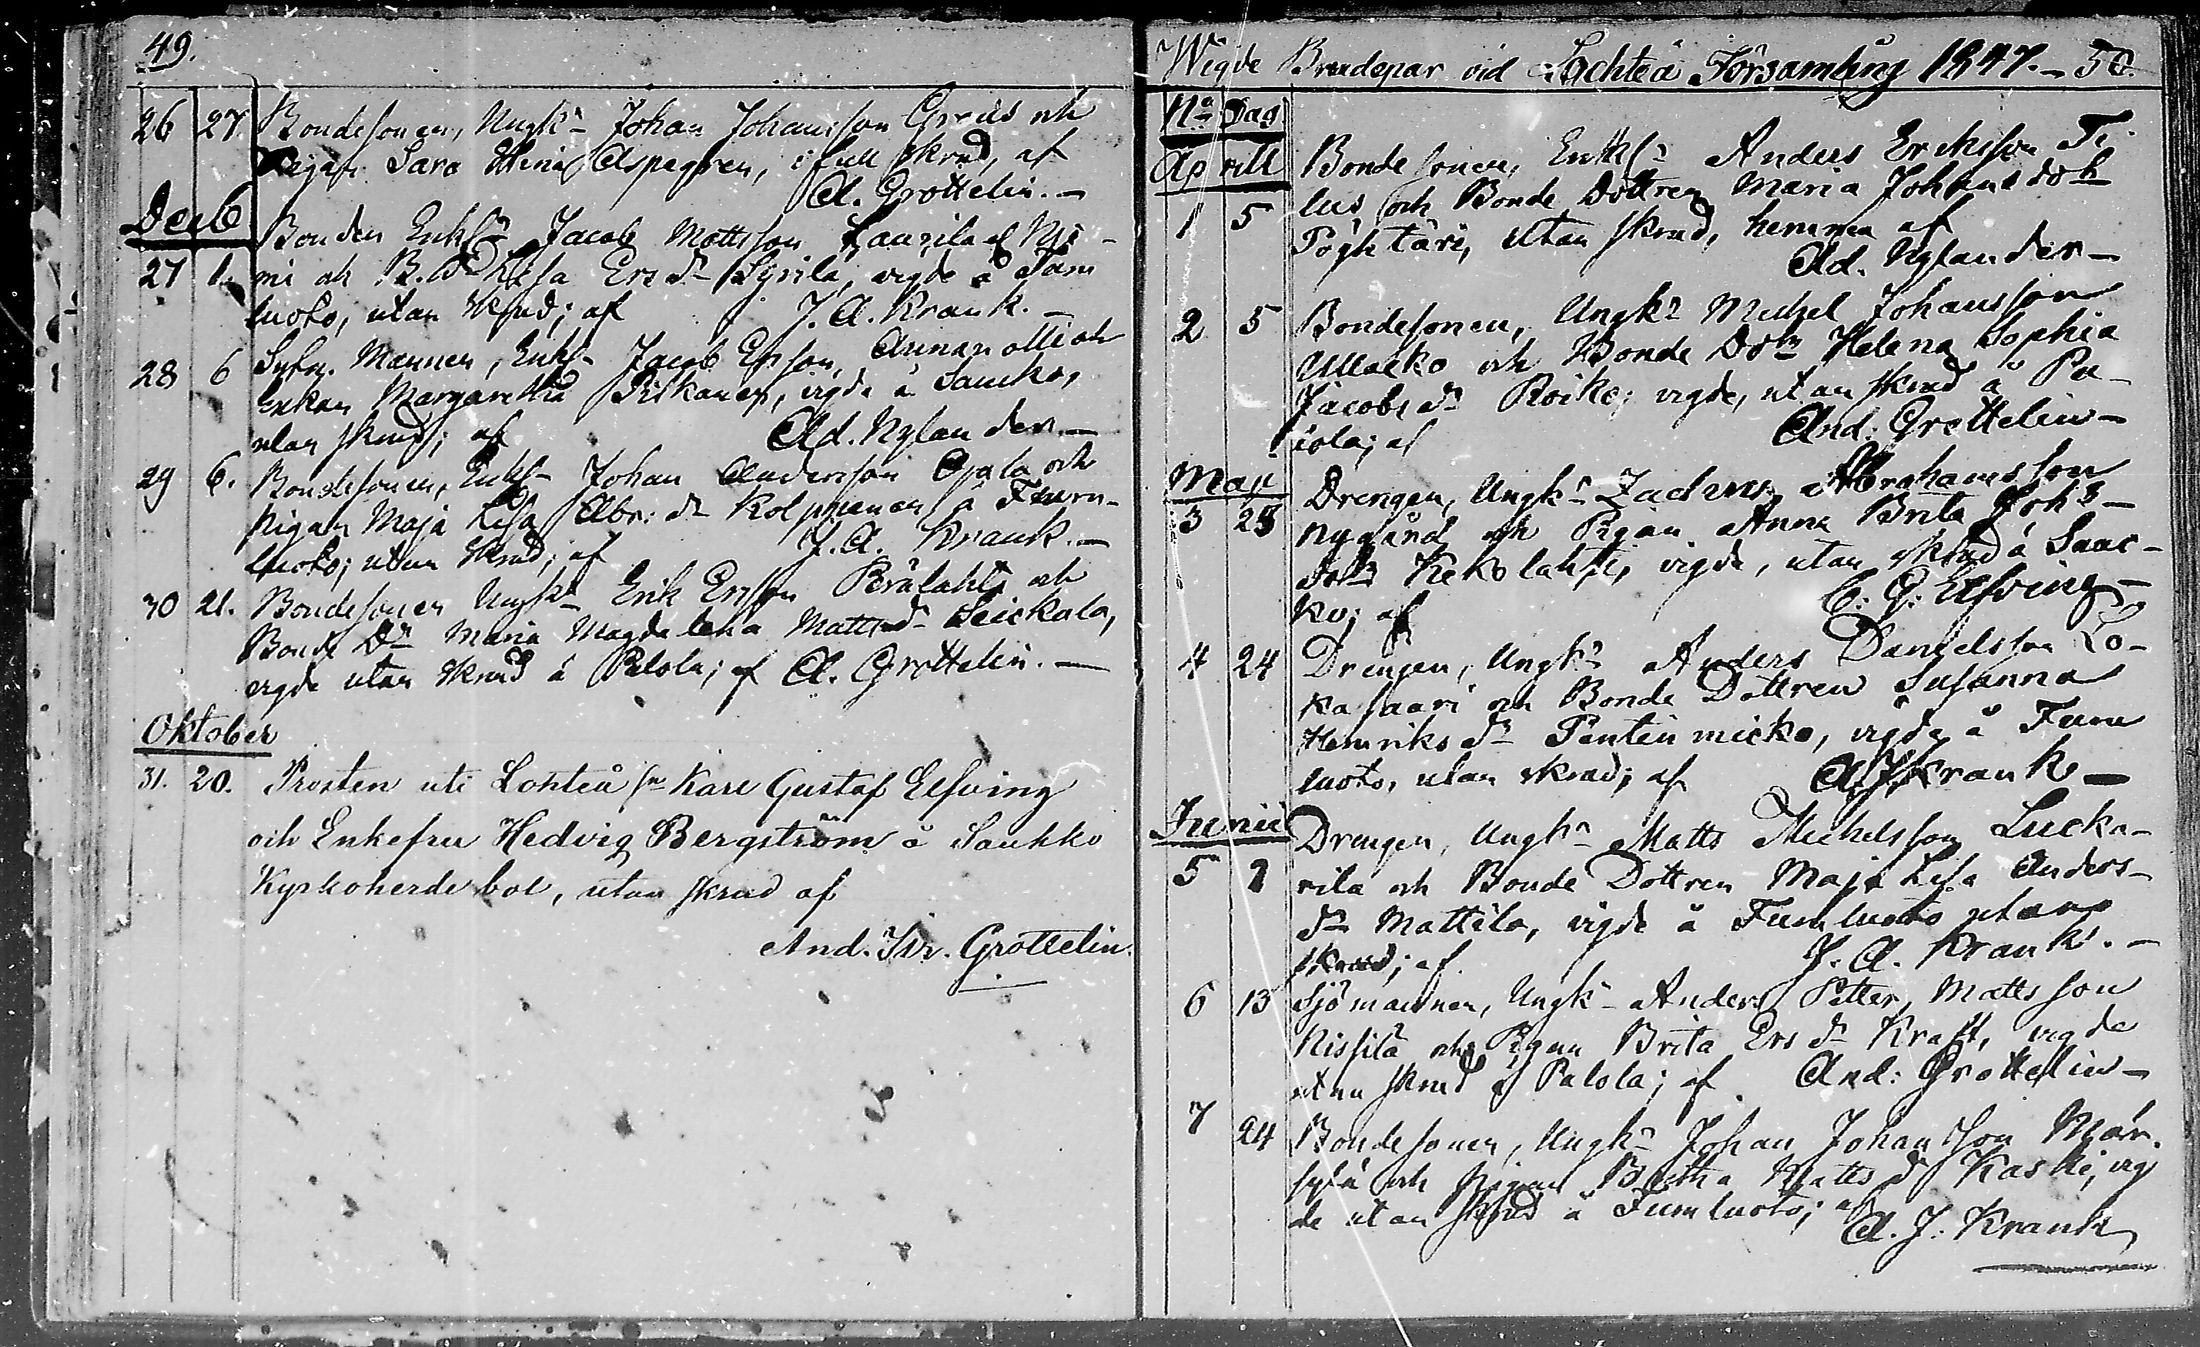 49.
26 27 Bondesonen, Ungk. Johan Johansson Greus och
Pigan Sara Stina Aspegren, i full skrud, af
A. Grottelin. —
Decb
Bonden Enkl. Jacob Mattsson Laurila
27 1. mi och B.D. Lisa Ers dr Syrilä, vigde å Fum
luoto, utan skrud; af J. A. Krank. —
28 6 Sytn. Mannen, Enkl. Jacob Ersson, Annanolli och
Enkan Margaretha Piskanen, vigde å Saucko,
utan skrud; af Ad. Nylander —
29 6. Bondesonen, Enkl. Johan Andersson Ojala och
Pigan Maja Lisa Abr: dr Kolppanen å Fum-
luoto; utan skrud; af J. A. Krank. —
30 21. Bondesonen Ungk. Erik Ersson Perälahti och
Bonde Dr Maria Magdalena Matts dr Leickala,
vigde utan skrud å Palola; af A. Grottelin. —
Oktober
31. 20. Prosten uti Lohteå Karl Gustaf Elfving
och Enkefru Hedvig Bergström å Saukko
Kyrkoherdebol, utan skrud af
And. Joh. Grottelin.
Wigde Brudepar vid Lochteå Församling 1847. — 50.
No Dag
Aprill Bondesonen, Enkl. Anders Eriksson Ti-
1 5 lus och Bonde Dottren Maria Johansdotr
Pöyhtäri, utan skrud, hemma af
Ad. Nylander —
2 5 Bondesonen, Ungk. Michel Johansson
Ullacko och Bonde Dotr Helena Sophia
Jacobs dr Roiko; vigde, utan skrud å Pa-
lola; af And. Grottelin —
Maji Drengen, Ungk. Zachris Abrahamsson
3 23 Nygård och Pigan Anna Brita Joh:s-
dotr Kekolahti, vigde, utan skrud å Sauc-
ko; af C. G. Elfving —
4 24 Drengen, Ungk. Anders Danielsson Lo-
kasaari och Bonde Dottren Susanna
Henriks dr Penttinmicko, vigde å Fum
luoto, utan skrud; af A. J. Krank —
Junii Drengen, Ungk. Matts Michelsson Lucka-
5 7 rila och Bonde Dottren Maja Lisa Anders-
dr Mattila, vigde å Fumluoto utan
skrud; af J. A. Krank. —
6 13 Sjömannen, Ungk. Anders Petter Mattsson
Nissilä och Pigan Brita Ers dr Kraft, vigde
utan skrud å Palola; af And: Grottelin —
7 24 Bondesonen, Ungk. Johan Johansson Mär-
sylä och Pigan Britha Matts dr Kaski, vig
de utan skrud å Fumluoto; af
A. J. Krank